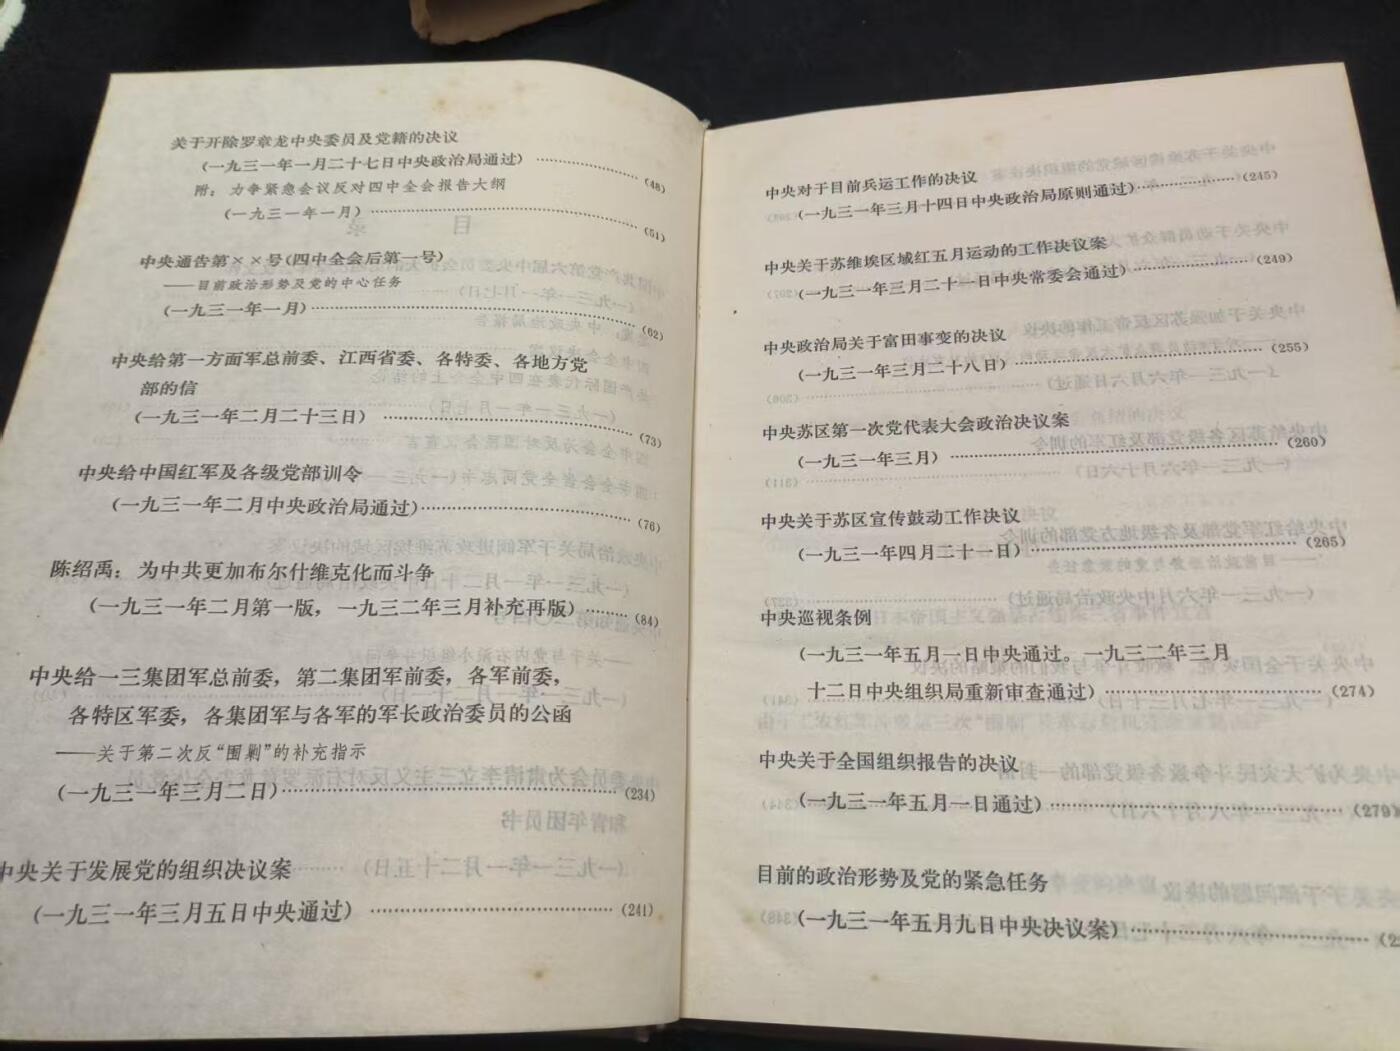 关于开除罗章龙中央委员及党籍的决议
(一九三一年一月二十七日中央政治局通过)……………(48)
附：力争紧急会议反对四中全会报告大纲
(一九三一年一月)……………(51)
中央通告第××号(四中全会后第一号)
——目前政治形势及党的中心任务
(一九三一年一月)……………(62)
中央给第一方面军总前委、江西省委、各特委、各地方党
部的信
(一九三一年二月二十三日)……………(73)
中央给中国红军及各级党部训令
(一九三一年二月中央政治局通过)……………(76)
陈绍禹：为中共更加布尔什维克化而斗争
(一九三一年二月第一版，一九三二年三月补充再版)………(84)
中央给一三集团军总前委，第二集团军前委，各军前委，
各特区军委，各集团军与各军的军长政治委员的公函
——关于第二次反“围剿”的补充指示
(一九三一年三月二日)……………(234)
中央关于发展党的组织决议案
(一九三一年三月五日中央通过)……………(241)
中央对于目前兵运工作的决议
(一九三一年三月十四日中央政治局原则通过)……………(245)
中央关于苏维埃区域红五月运动的工作决议案
(一九三一年三月二十一日中央常委会通过)……………(249)
中央政治局关于富田事变的决议
(一九三一年三月二十八日)……………(255)
中央苏区第一次党代表大会政治决议案
(一九三一年三月)……………(260)
中央关于苏区宣传鼓动工作决议
(一九三一年四月二十一日)……………(265)
中央巡视条例
(一九三一年五月一日中央通过。一九三二年三月
十二日中央组织局重新审查通过)……………(274)
中央关于全国组织报告的决议
(一九三一年五月一日通过)……………(279)
目前的政治形势及党的紧急任务
(一九三一年五月九日中央决议案)……………